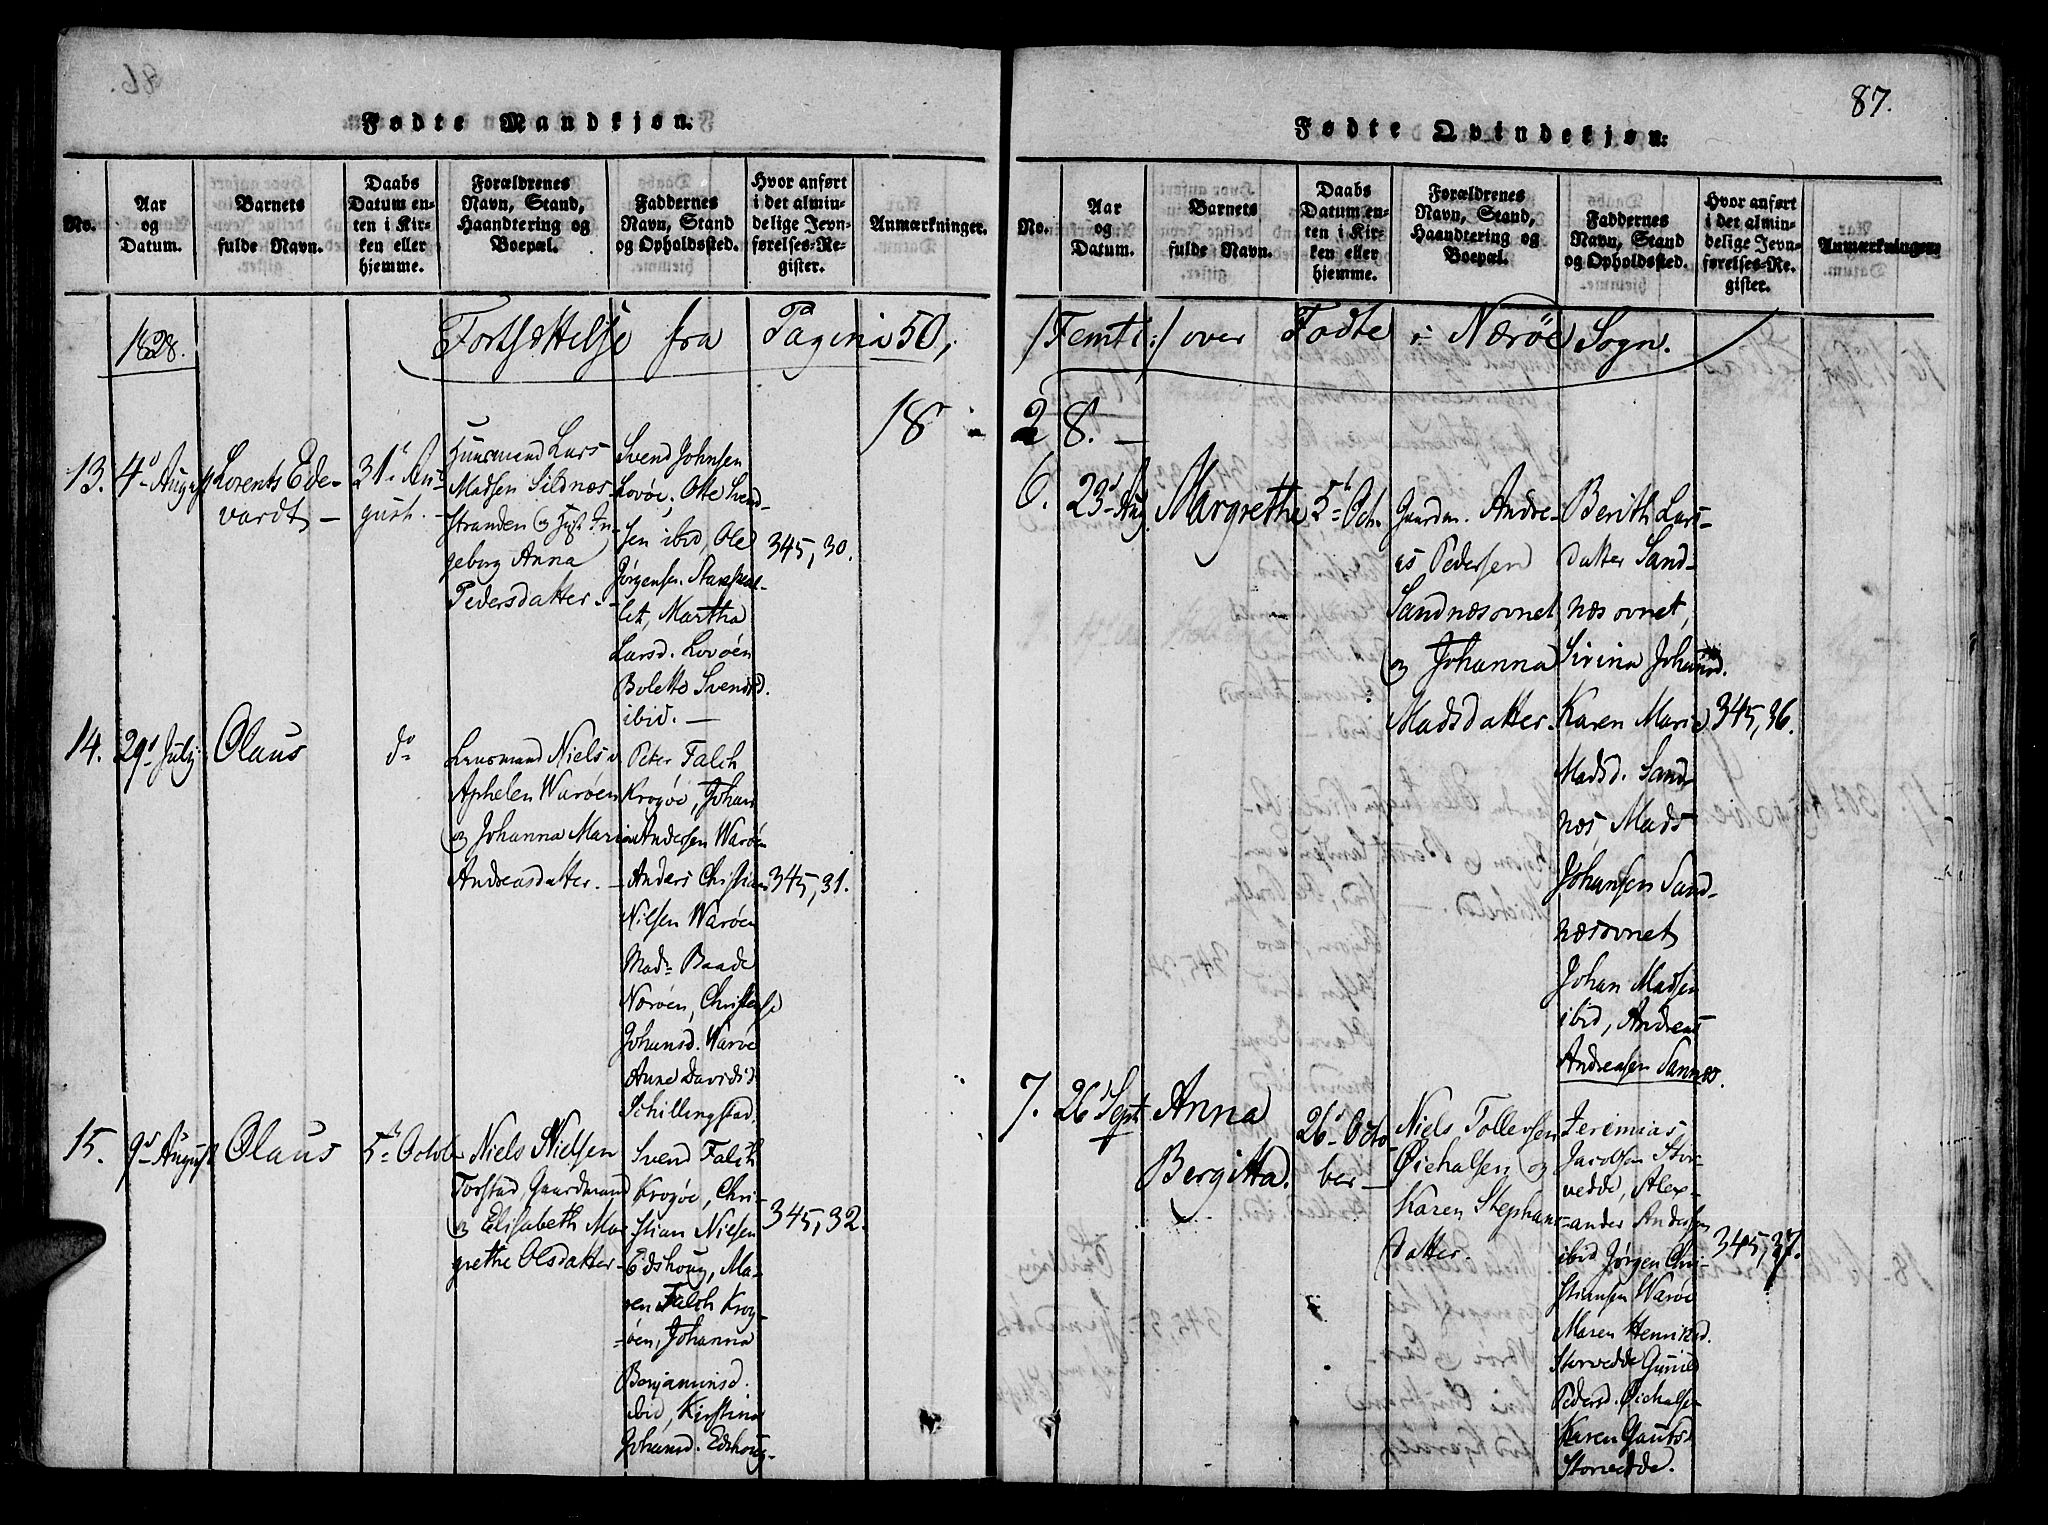 87.
Fødte Mandkjøn.
No.
Aar
og
Datum.
Barnets
fulde Navn.
Daabs
Datum en-
ten i Kir-
ken eller
hjemme.
Forældrenes
Navn, Stand,
Haandtering og
Boepæl.
Faddernes
Navn, Stand
og Opholdssted.
Hvor anført
i det almin-
delige Jevn-
førelses-Re-
gister.
Anmærkninger.
1828.
Fortsættelse fra Pagina 50,
18
13.
4d August
Lorents Ede-
vardt
31te Au-
gust.
Huusmand Lars
Madsen Sildnæs-
stranden og Hust. In-
geborg Anna
Pedersdatter.
Svend Johnsen
Lovöe, Otte Svend-
sen ibid, Ole
Jørgensen
let, Martha
Larsd. Lovöen
Bolette Svendsd.
ibid.
345, 30.
14.
29d July
Olaus
do
Lensmand Niels
Aphelen Waröen
og Johanna Maria
Andreasdatter.
Peter Falch
Krogöe, Johan
Andersen Waröe
Anders Christian
Nilsen Waröen
Mad. Baade
Næröen, Christense
Johansd. Waröe
Anne Davidsd.
Schillingstad.
345, 31.
15.
9d August
Olaus
5te Octob.
Niels Nielsen
Torstad Gaardmand
og Elisabeth Mar-
grethe Olsdatter
Svend Falch
Krogöe, Chri-
stian Nielsen
Edshoug, Ma-
ren Falch Krog-
öen, Johanna
Benjaminsd.
ibid, Kirstina
Johansd. Edshoug
345, 32.
Fødte Qvindekjøn:
No.
Aar
og
Datum.
Barnets
fulde Navn.
Daabs
Datum en-
ten i Kir-
ken eller
hjemme.
Forældrenes
Navn, Stand,
Haandtering og
Boepæl.
Faddernes
Navn, Stand
og Opholdssted.
Hvor anført
i det almin-
delige Jevn-
førelses-Re-
gister.
Anmærkninger.
/Femti:/ over Fødte i Næröe Sogn.
28.
6.
23d Aug.
Margrethe
5te Oct.
Gaardm. Andre-
as Pedersen
Sandnæsovnet
og Johanna
Madsdatter.
Berith Lars-
datter Sand-
næsovnet,
Sirina Johansd.
Karen Marie
Madsd. Sand-
næs, Mads
Johansen Sand-
næsovnet
Johan Madsen
ibid, Andreas
Andreasen Sannæs.
345, 36.
7.
26d Sept.
Anna
Bergitta.
26d Octo-
ber
Niels Tollevsen
Øiehalsen og
Karen Stephans-
datter.
Jeremias
Jacobsen Stor-
vedde, Alex-
ander Andersen
ibid Jørgen Chri-
stiansen Waröe
Maren Henriksd.
Storvedde Gunild
Pedersd. Øiehalsen
Karen Gautsd.
Storvedde.
345, 37.